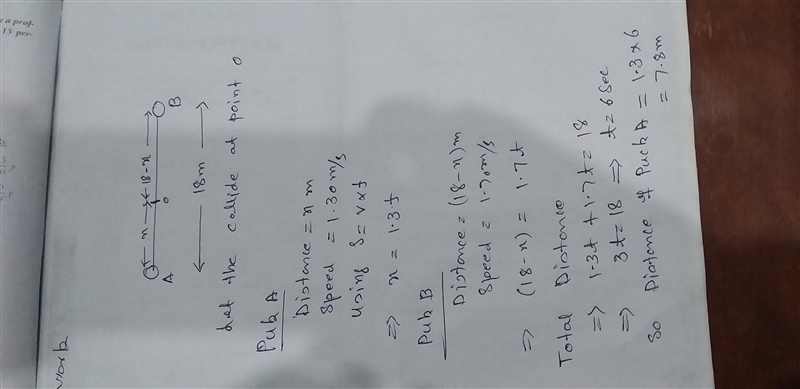 work
e a prof-
15 per-
m
18-x
A
o
B
18m
Let the collide at point o
Puk A
Distance = x m
Speed = 1.30m/s
Using S = v x t
⇒ x = 1.3t
Puk B
Distance = (18-x)m
Speed = 1.70m/s
⇒ (18-x) = 1.7t
Total Distance
⇒ 1.3t + 1.7t = 18
⇒ 3t = 18 ⇒ t = 6 Sec
So Distance of Puck A = 1.3 x 6
= 7.8m